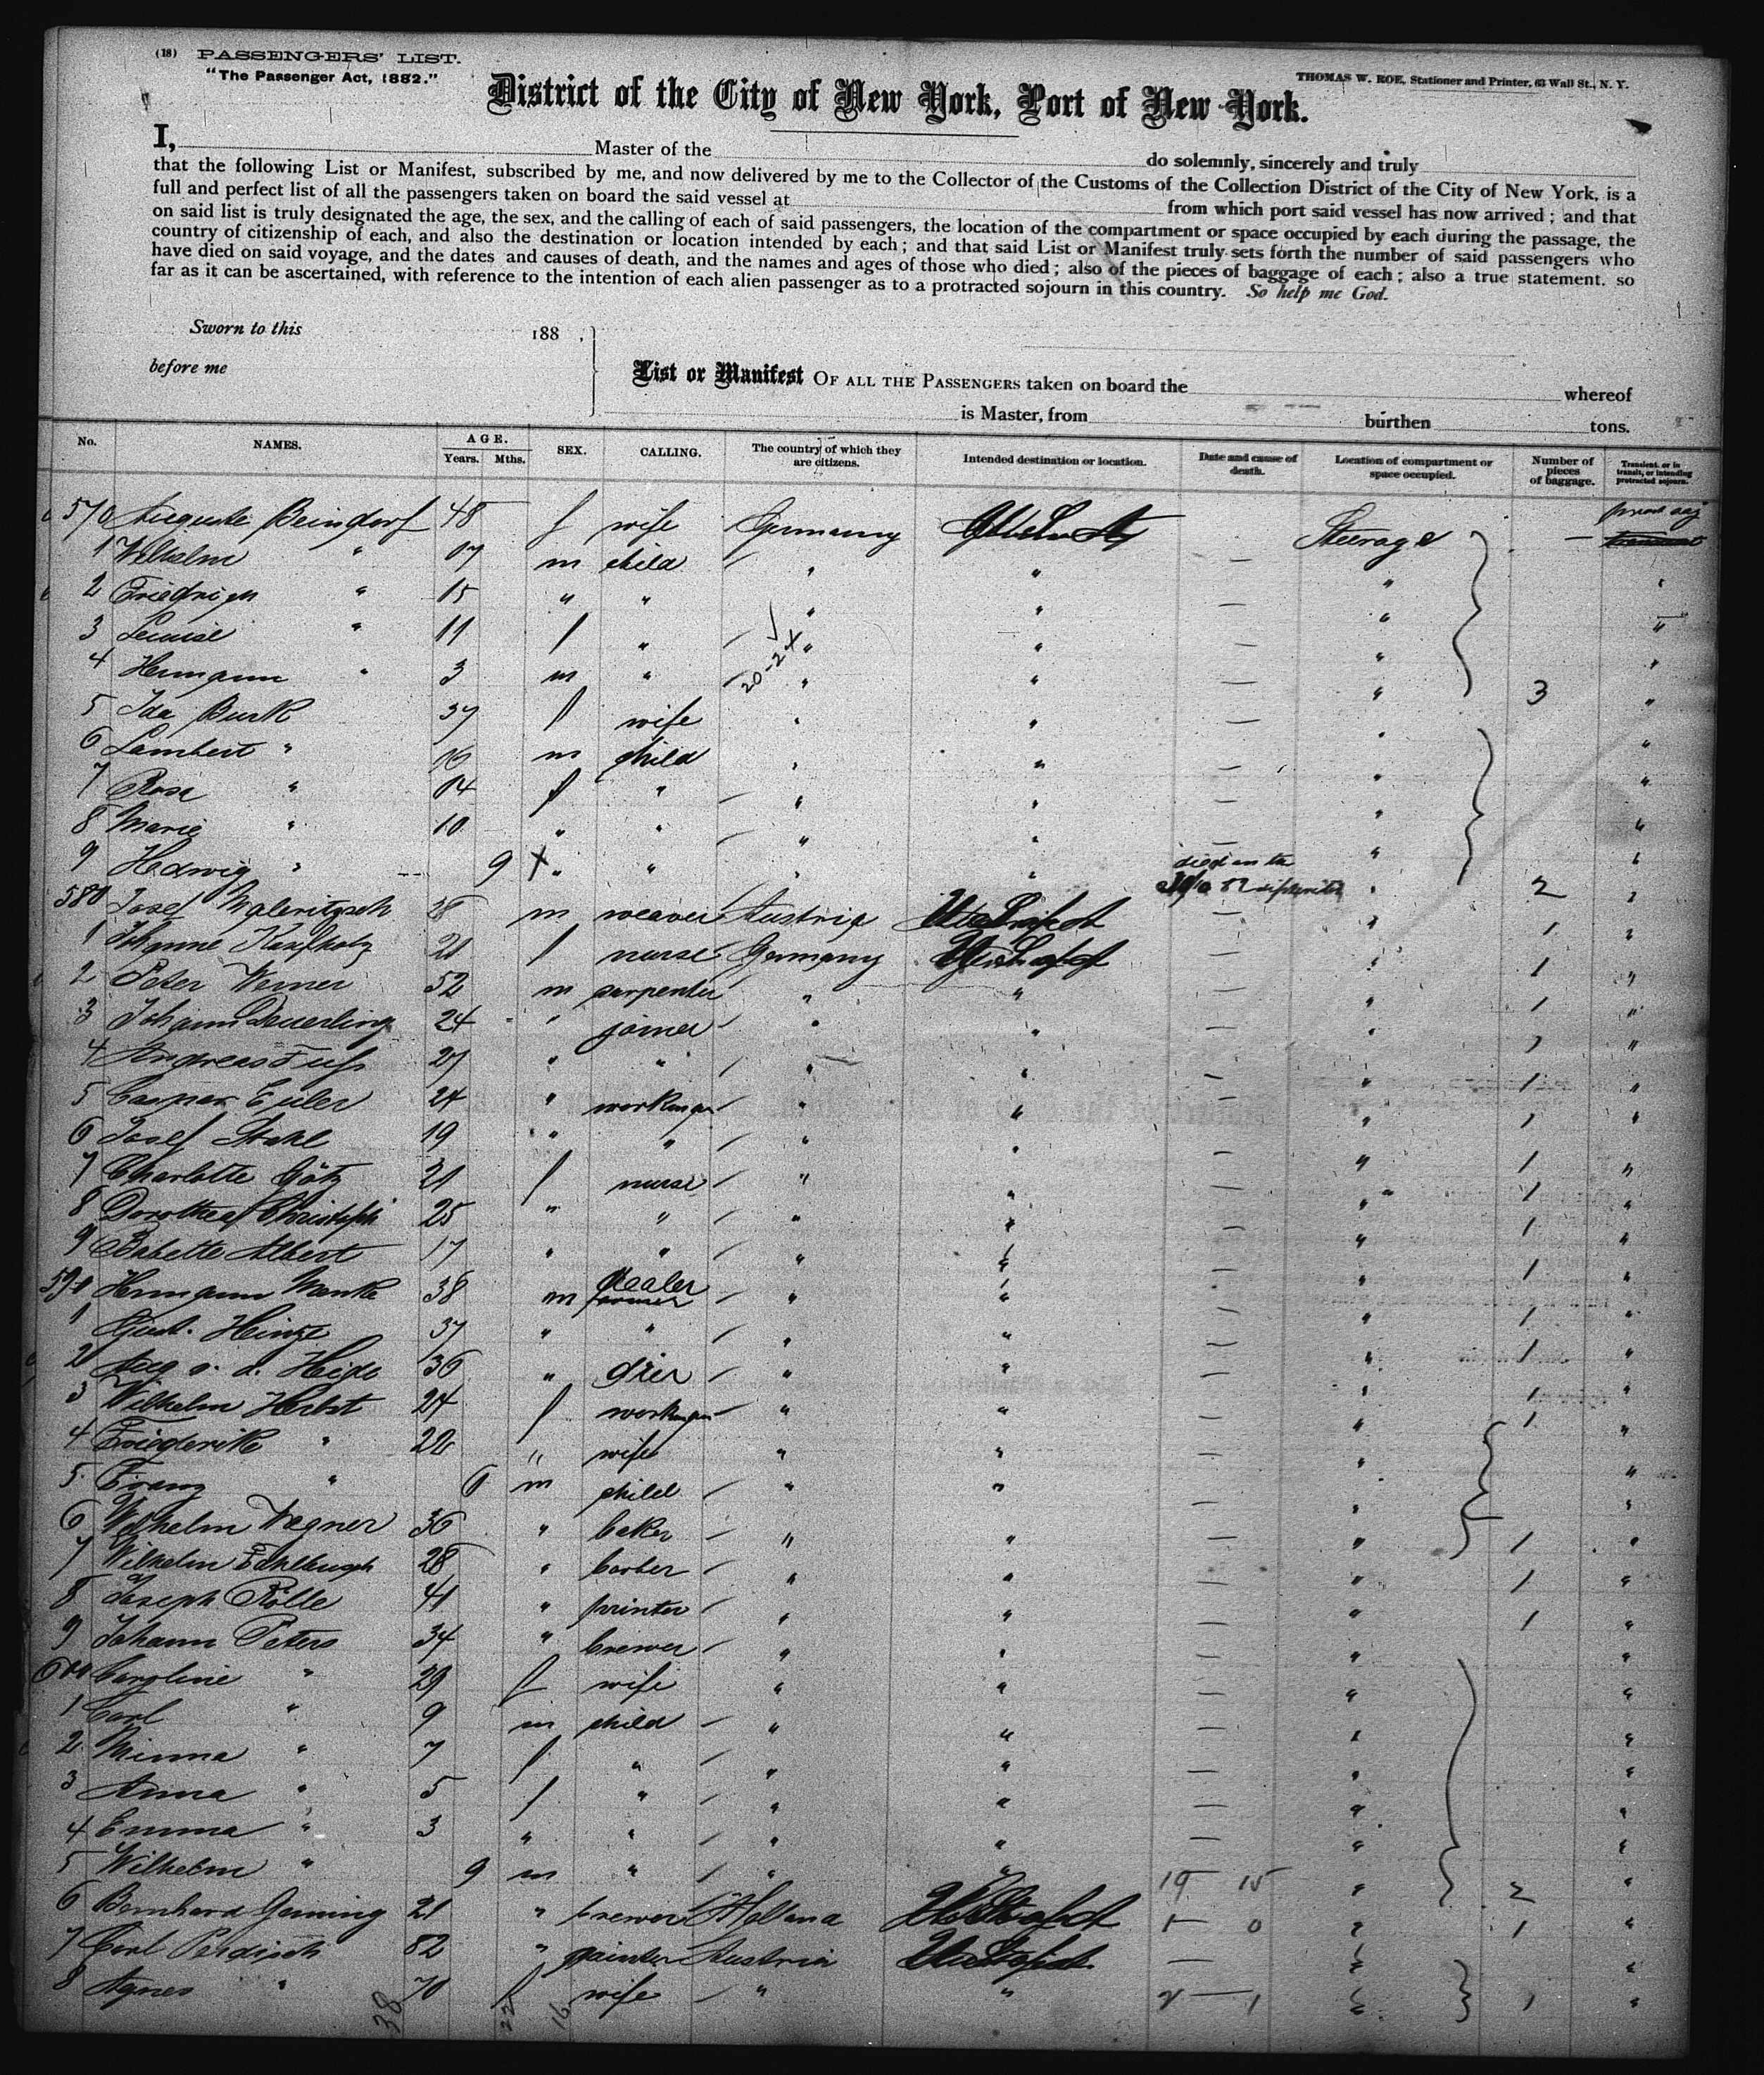 (18) PASSENGERS' LIST.
"The Passenger Act, 1882."
THOMAS W. ROE, Stationer and Printer, 63 Wall St., N. Y.
District of the City of New York, Port of New York.
I, Master of the do solemnly, sincerely and truly
that the following List or Manifest, subscribed by me, and now delivered by me to the Collector of the Customs of the Collection District of the City of New York, is a
full and perfect list of all the passengers taken on board the said vessel at from which port said vessel has now arrived; and that
on said list is truly designated the age, the sex, and the calling of each of said passengers, the location of the compartment or space occupied by each during the passage, the
country of citizenship of each, and also the destination or location intended by each; and that said List or Manifest truly sets forth the number of said passengers who
have died on said voyage, and the dates and causes of death, and the names and ages of those who died; also of the pieces of baggage of each; also a true statement, so
far as it can be ascertained, with reference to the intention of each alien passenger as to a protracted sojourn in this country. So help me God.
Sworn to this 188 ,
before me
List or Manifest OF ALL THE PASSENGERS taken on board the whereof
is Master, from burthen tons.
No. NAMES. AGE. Years. Mths. SEX. CALLING. The country of which they are citizens. Intended destination or location. Date and cause of death. Location of compartment or space occupied. Number of pieces of baggage. Transient, or in transit, or intending protracted sojourn.
570 Auguste Beindorf 48 f wife Germany Steerage —
1 Wilhelm " 17 m child " " — " "
2 Friedrich " 15 " " " " — " "
3 Louise " 11 f " " " — " "
4 Hermann " 3 m " 20-24 " " — " 3 "
5 Ida Burk 37 f wife " " — " "
6 Lambert " 16 m child " " — " "
7 Rosa " 14 f " " " — " "
8 Marie " 10 " " " " — " "
9 Hedwig " 9 X " " " " died on the " 2 "
580 Josef 28 m weaver Austria — " 1 "
1 21 f nurse Germany — " 1 "
2 Peter Werner 52 m carpenter " " — " 1 "
3 Johann Deuerling 24 " joiner " " — " 1 "
4 Andreas Fuss 27 " " " " — " 1 "
5 Caspar Euler 24 " workman " " — " 1 "
6 Josef Stahl 19 " " " " — " 1 "
7 Charlotte Götz 21 f nurse " " — " 1 "
8 Dorothea Christoph 25 " " " " — " 1 "
9 Babette Albert 17 " " " " — " 1 "
590 Hermann Menke 38 m dealer " " — " 1 "
1 Gust. Hinze 37 " " " " — " 1 "
2 Aug v. d. Heide 36 " dier " " — " 1 "
3 Wilhelm Herbst 24 f workman " " — " 1 "
4 Friederike " 22 " wife " " — " "
5 Franz " 6 m child " " — " "
6 Wilhelm Wegner 36 " baker " " — " 1 "
7 Wilhelm 28 " barber " " — " 1 "
8 Joseph Rölle 41 " printer " " — " 1 "
9 Johann Peters 34 " brewer " " — " "
600 Caroline " 29 f wife " " — " "
1 Carl " 9 m child " " — " "
2 Minna " 7 f " " " — " "
3 Anna " 5 f " " " — " "
4 Emma " 3 " " " " — " "
5 Wilhelm " 9 m " " " 19 — 15 " 2 "
6 Bernhard 21 " brewer Holland 1 — 0 " 1 "
7 Carl 82 " painter Austria — " "
8 Agnes " 70 f wife " " 2 — 1 " 1 "
38 22 16